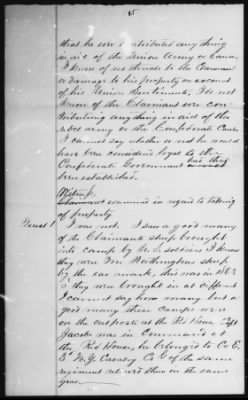 15
that he ever contributed anything
in aid of the Union Army or Cause.
I know of no threats to the Claimant
or damage to his property on account
of his Union Sentiments, I do not
know of the Claimant ever con
tributing anything in aid of the
rebel army or the Confederate Cause
I cannot say whether or not he would
have been considered loyal to the
Confederate Government had that
been established.
Witness,
Claimant examined in regard to taking
of property
Quest 1 I was not. I saw a good many
of the Claimants sheep brought
into camp by the U. S. soldiers I knew
they were Mr Worthingtons sheep
by the ear mark, this was in 1863
they were brought in at different
I cannot say how many but a
good many these camps were
on the outposts at the Red House Capt
Jacobs was in Command at
the Red House, he belonged to Co E.
3" N. Y. Cavalry Co of the same
regiment relieved them in the same
year